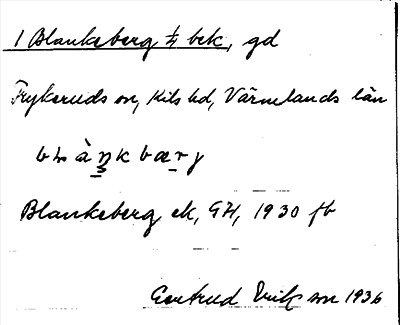 1 Blankeberg 1/4 bek, gd
Frykeruds sn, Kils hd, Värmelands län
Blankeberg ek, GK, 1930 fb
Gertrud Eriksson 1936